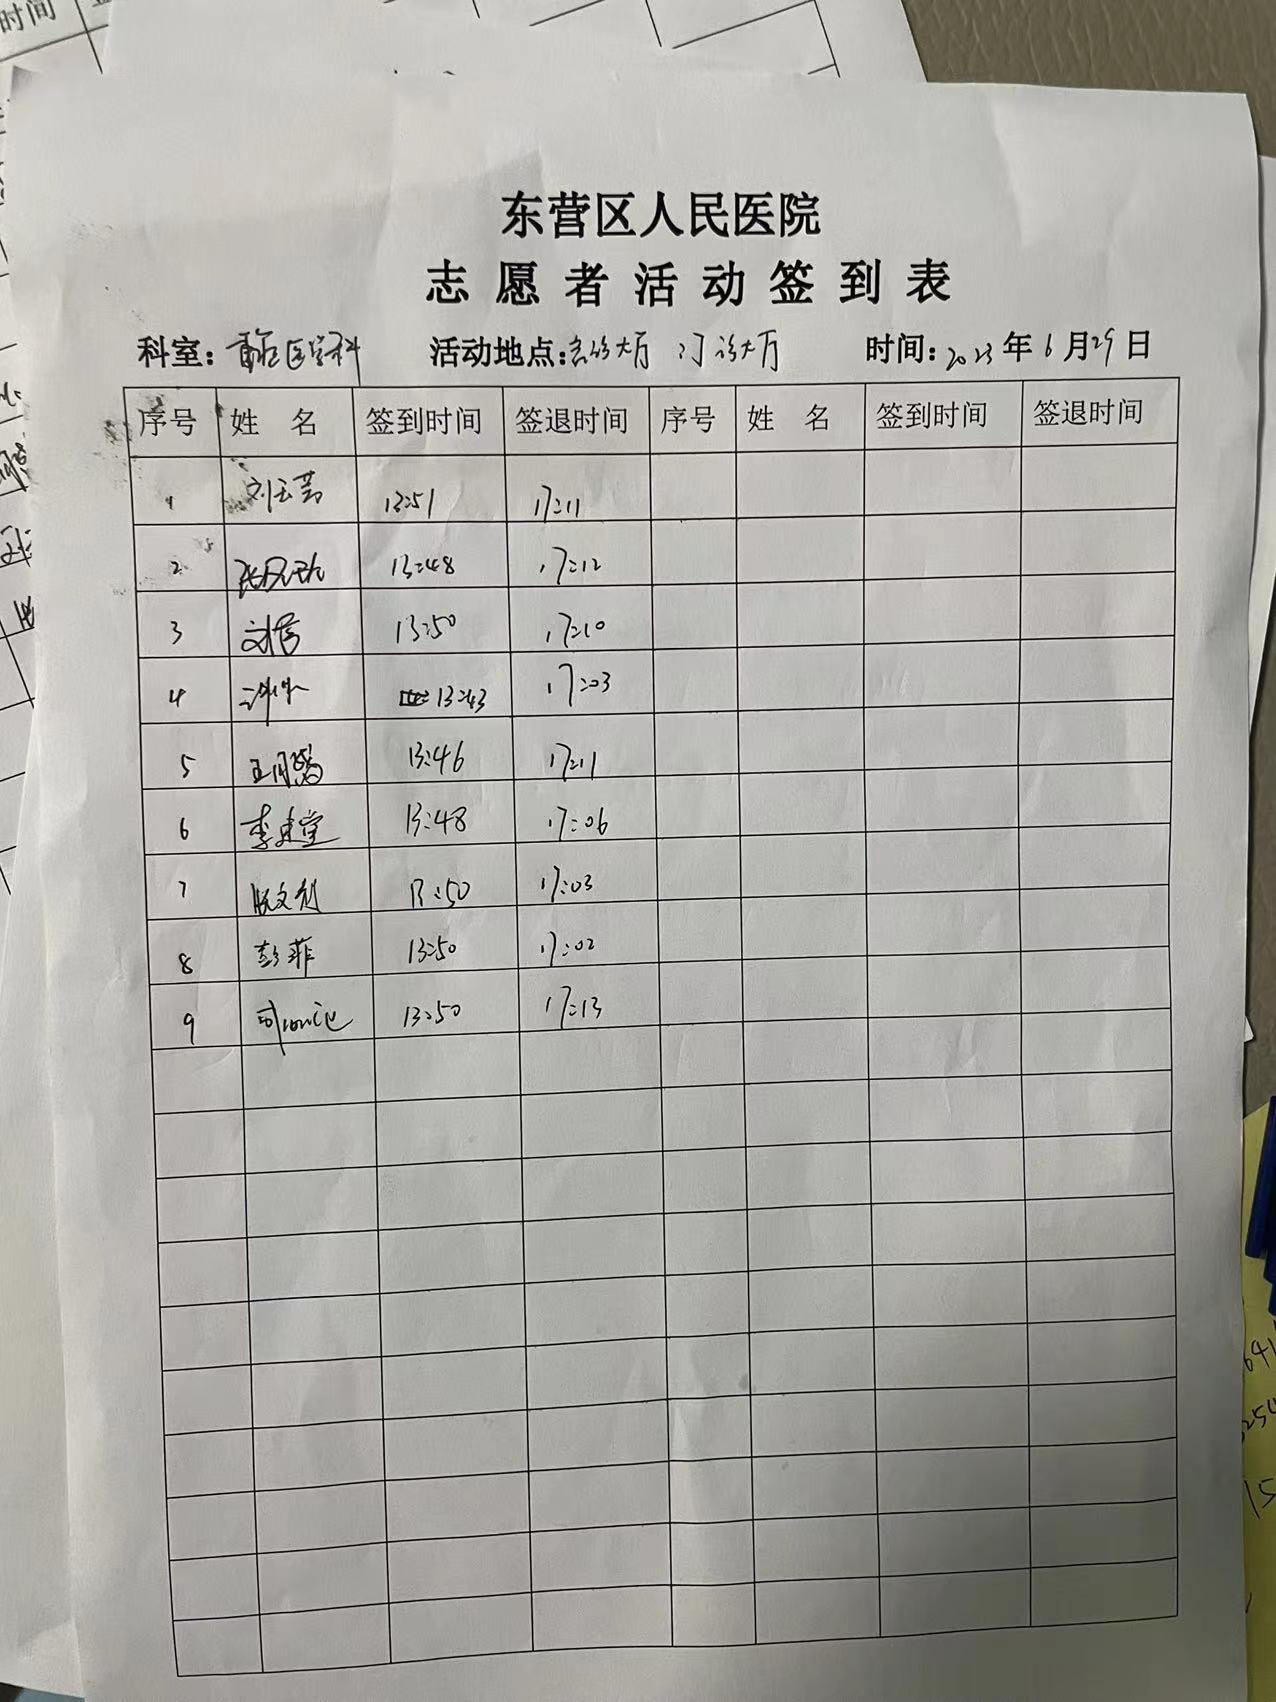 时间
东营区人民医院
志愿者活动签到表
科室：重症医学科 活动地点：急诊大厅 门诊大厅 时间：2023年6月29日
序号 姓名 签到时间 签退时间 序号 姓名 签到时间 签退时间
1 刘云芸 13:51 17:11
2 13:48 17:12
3 13:50 17:10
4 13:43 17:03
5 王月 13:46 17:11
6 李建堂 13:48 17:06
7 13:50 17:03
8 彭菲 13:50 17:02
9 13:50 17:13